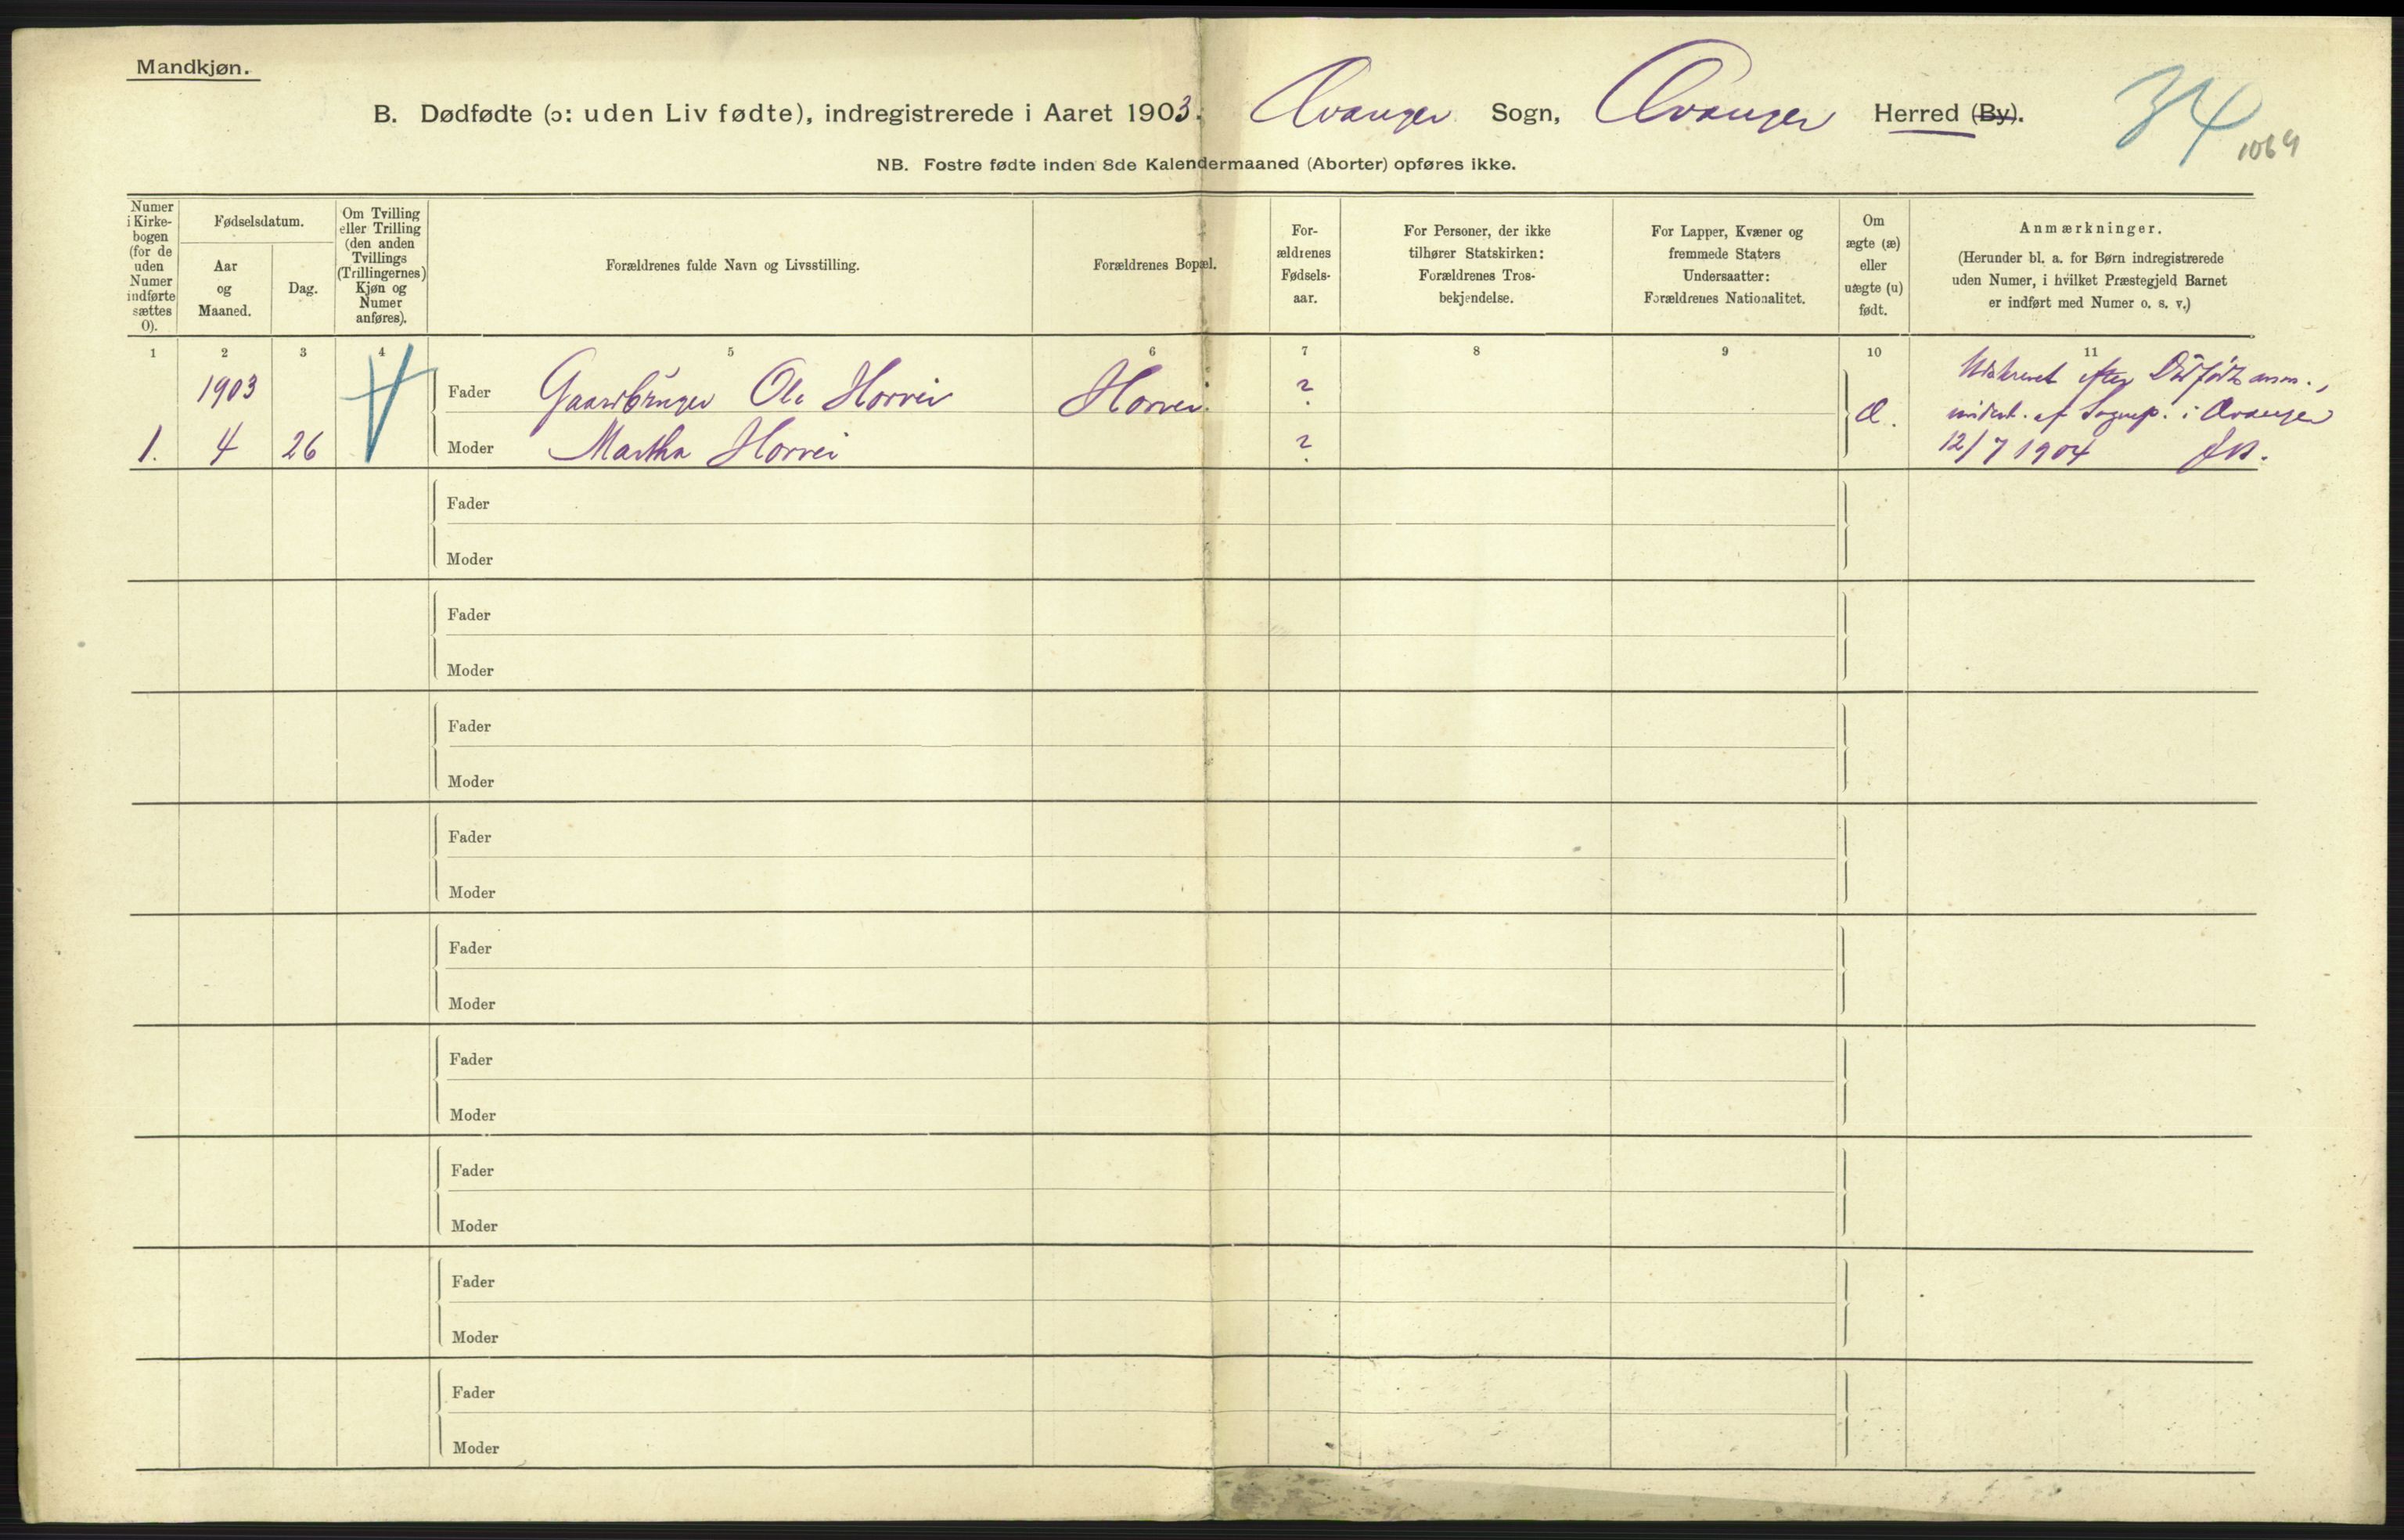 Mandkjøn.
B. Dødfødte (ɔ: uden Liv fødte), indregistrerede i Aaret 1903. Evanger Sogn, Evanger Herred (By).
34
1069
NB. Fostre fødte inden 8de Kalendermaaned (Aborter) opføres ikke.
Numer
i Kirke-
bogen
(for de
uden
Numer
indførte
sættes
0).
Fødselsdatum.
Aar
og
Maaned.
Dag.
Om Tvilling
eller Trilling
(den anden
Tvillings
(Trillingernes)
Kjøn og
Numer
anføres).
Forældrenes fulde Navn og Livsstilling.
Forældrenes Bopæl.
For-
ældrenes
Fødsels-
aar.
For Personer, der ikke
tilhører Statskirken:
Forældrenes Tros-
bekjendelse.
For Lapper, Kvæner og
fremmede Staters
Undersaatter:
Forældrenes Nationalitet.
Om
ægte (æ)
eller
uægte (u)
født.
Anmærkninger.
(Herunder bl. a. for Børn indregistrerede
uden Numer, i hvilket Præstegjeld Barnet
er indført med Numer o. s. v.)
1 2 3 4 5 6 7 8 9 10 11
1903 Fader Gaardbruger Ole Horvei Horvei ? Æ. Udskrevet efter Dødfødtanm.,
af Sognep. i Evanger
1. 4 26 Moder Martha Horvei ? 12/7 1904
Fader
Moder
Fader
Moder
Fader
Moder
Fader
Moder
Fader
Moder
Fader
Moder
Fader
Moder
Fader
Moder
Fader
Moder